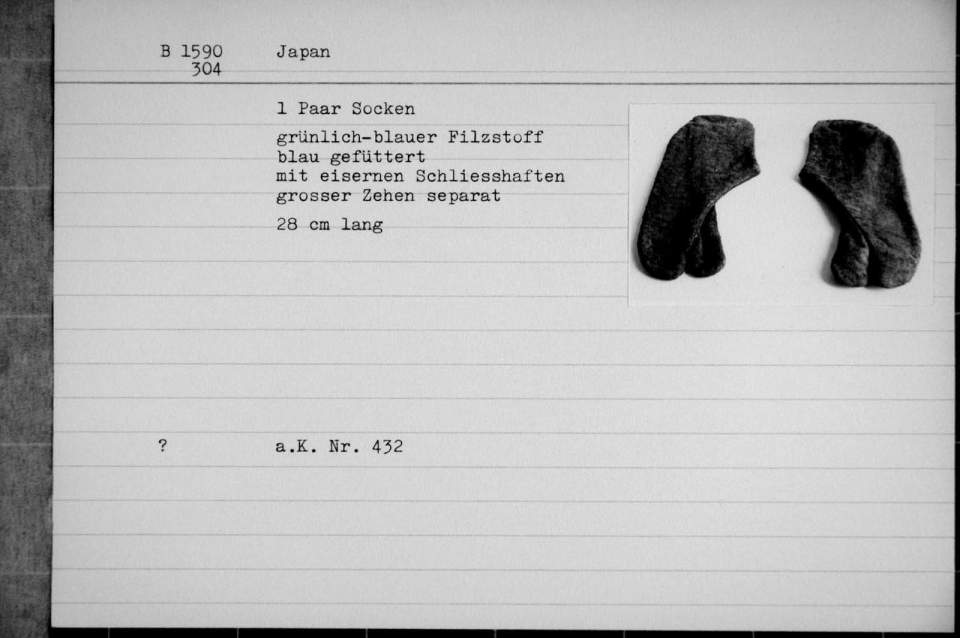 B 1590 Japan
304
1 Paar Socken
grünlich-blauer Filzstoff
blau gefüttert
mit eisernen Schliesshaften
grosser Zehen separat
28 cm lang
? a.K. Nr. 432